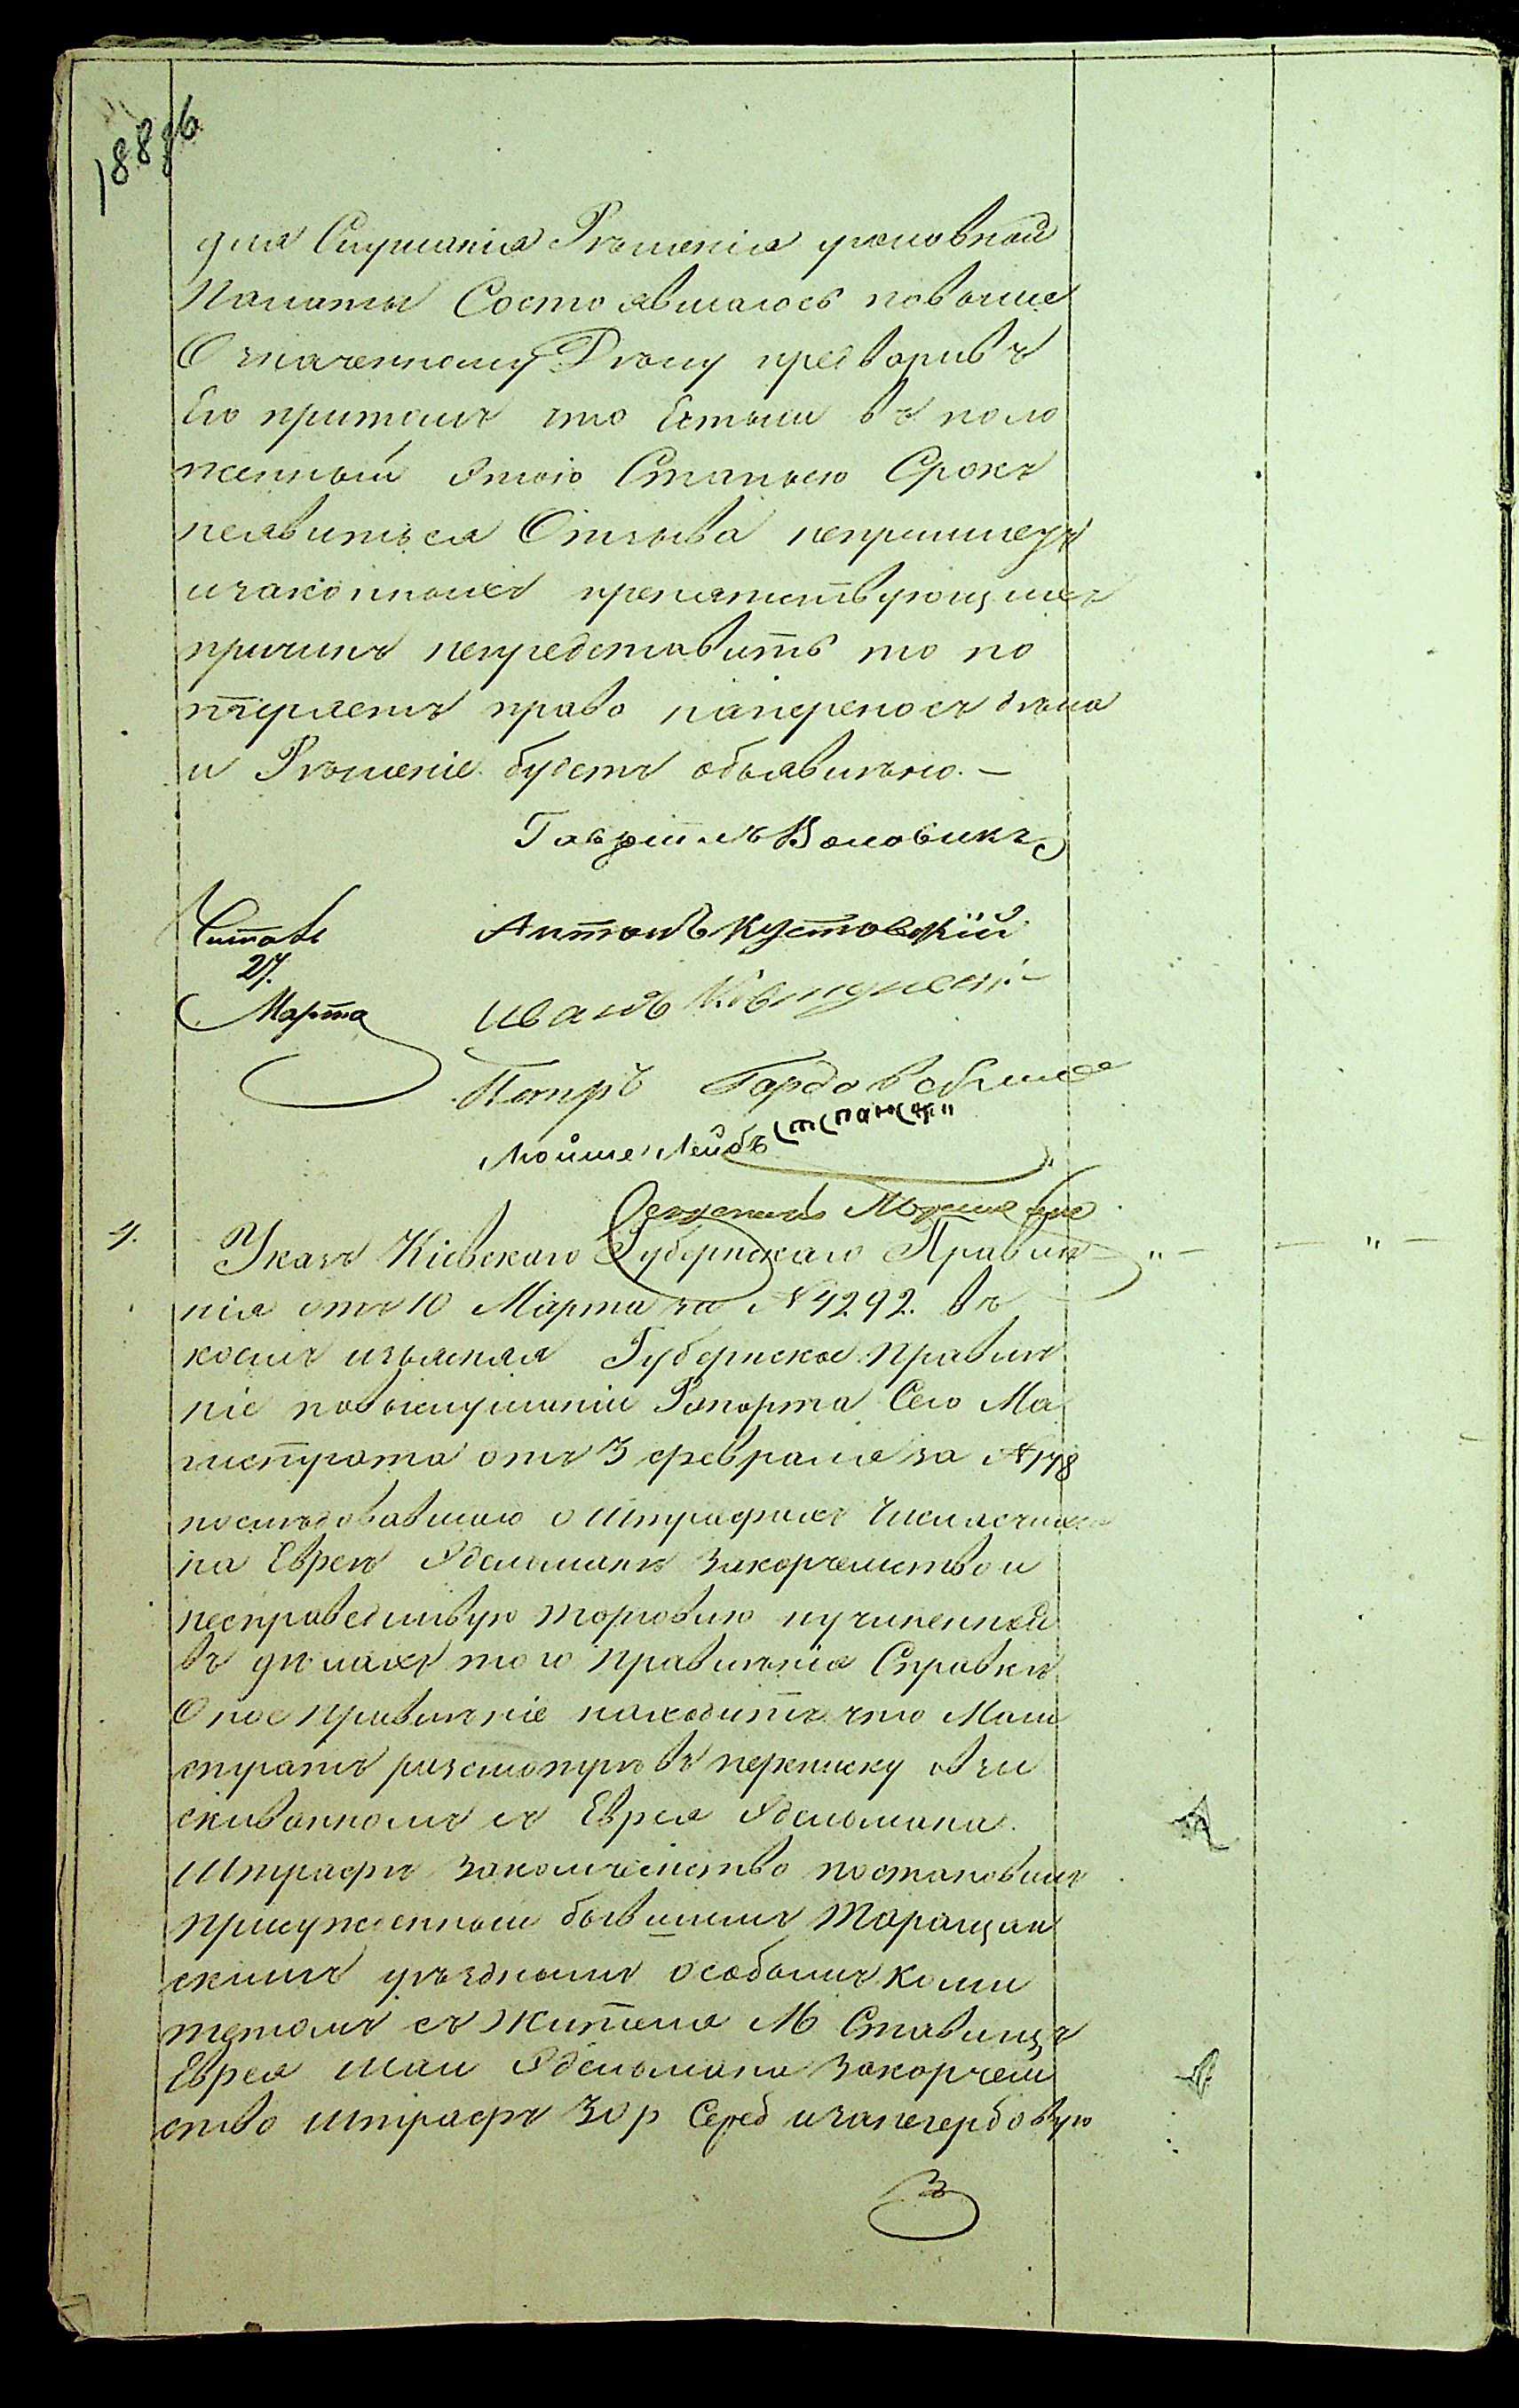 188об
для Слушанія Рѣшенія уголовной
Палаты Состоявшагося повыше
Означенному Дѣлу предваривъ
Его притомъ что Естьли въ поло
женный этою Статьею Срокъ
неявиться Отзыва непришлетъ
изаконныхъ препятствующихъ
причинъ непредставитъ то по
теряетъ право напереносъ дѣла
и Рѣшеніе будетъ объявлено. —
Гаврiилъ Воловикъ
Читалъ Антонъ Кустовскій
27.
Марта Иванъ
Петръ
Мойше Лейбъ
4. Указъ Кіевскаго Губернскаго Правле " — — " —
нія отъ 10 Марта за N 4292. въ
коемъ изъясняя Губернское Правлѣ
ніе повыслушаніи Рапорта Сего Ма
гистрата отъ 3 февраля за N 178
послѣдовавшаго о Штрафахъ Числящихся
на Евреѣ Эдельманѣ закорчемство и
несправедливую торговлю иучиненной
въ дѣлахъ того Правлѣнія Справки
Оное Правлѣніе находитъ что Маги
стратъ разсмотрѣвъ переписку овзы
скиванномъ съ Еврея Эдельмана
Штрафѣ закомчемство постановилъ
присужденный бывшимъ Таращан
скимъ уѣзднымъ особымъ коми
тетомъ съ Жителя М Ставищъ
Еврея Шаи Эдельмана закорчем
ство штрафъ 30 р Сереб изанегербовую